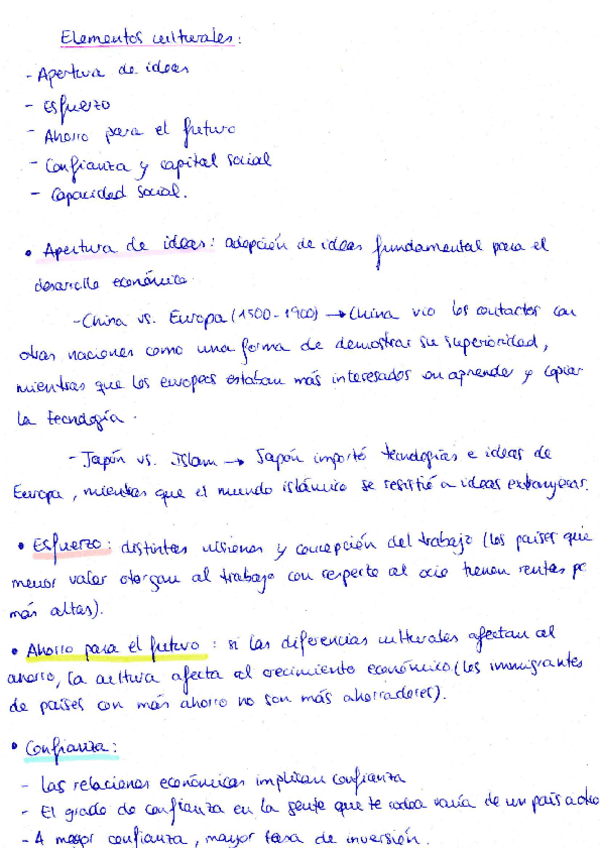 Elementos culturales:
- Apertura de ideas
- Esfuerzo
- Ahorro para el futuro
- Confianza y capital social
- Capacidad social.
• Apertura de ideas: adopción de ideas fundamental para el
desarrollo económico.
- China vs. Europa (1500-1900) → China vio los contactos con
otras naciones como una forma de demostrar su superioridad,
mientras que los europeos estaban más interesados en aprender y copiar
la tecnología.
- Japón vs. Islam → Japón importó tecnologías e ideas de
Europa, mientras que el mundo islámico se resistió a ideas extranjeras.
• Esfuerzo: distintas visiones y concepción del trabajo (los países que
menor valor otorgan al trabajo con respecto al ocio tienen rentas pc
más altas).
• Ahorro para el futuro: si las diferencias culturales afectan al
ahorro, la cultura afecta al crecimiento económico (los inmigrantes
de países con más ahorro no son más ahorradores).
• Confianza:
- Las relaciones económicas implican confianza
- El grado de confianza en la gente que te rodea varía de un país a otro
- A mayor confianza, mayor tasa de inversión.